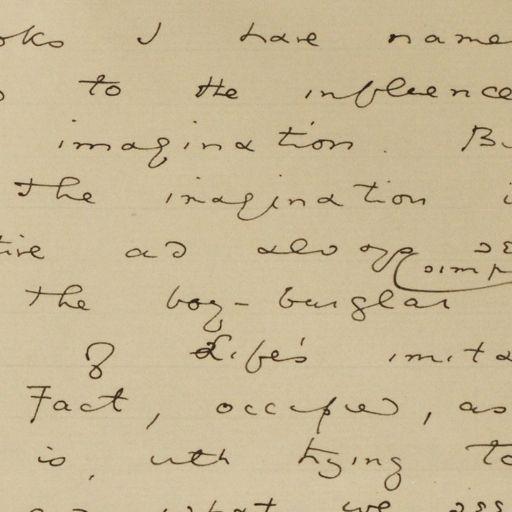 oks I have name
to the influence
imagination. Bu
the imagination i
tive and always se
simp
the boy-burglar
of Life's imita
Fact, occupied, as
is, with trying to
what we